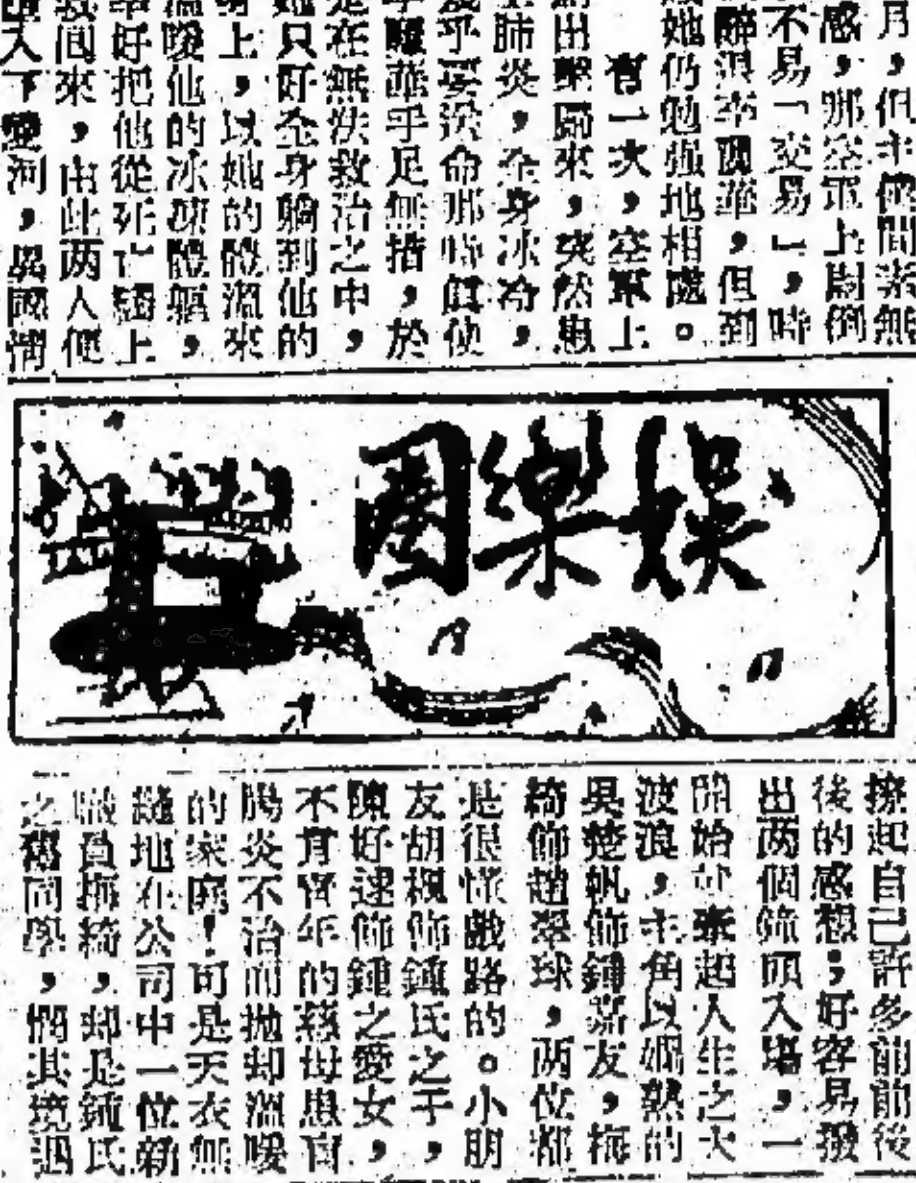 月，但主僕間素無
感，那空軍上尉倒
不易「交易」，時
華，但到
她仍勉强地相處。
有一次，空軍上
出擊歸來，突然患
肺炎，全身冰冷，
乎要送命那時
華手足無措，於
是在無法救治之中，
她只好全身躺到他的
身上，以她的體溫來
溫暖他的冰凍體軀，
幸好把他從死亡線上
救回來，由此两人便
入下愛河，異國情
娛樂圈
撩起自己許多前前後
後的感想；好容易撥
出两個鐘頭入場，一
開始就牽起人生之大
波浪，主角以嫻熟的
吳楚帆飾鍾嘉友，梅
綺飾趙翠球，两位都
是很懂戲路的。小朋
友胡楓飾鍾氏之子，
陳好逑飾鍾之愛女，
不育年的慈母患盲
腸炎不治而拋却溫暖
的家庭！可是天衣無
縫地在公司中一位新
職員梅綺，却是鍾氏
之舊同學，憫其境遇